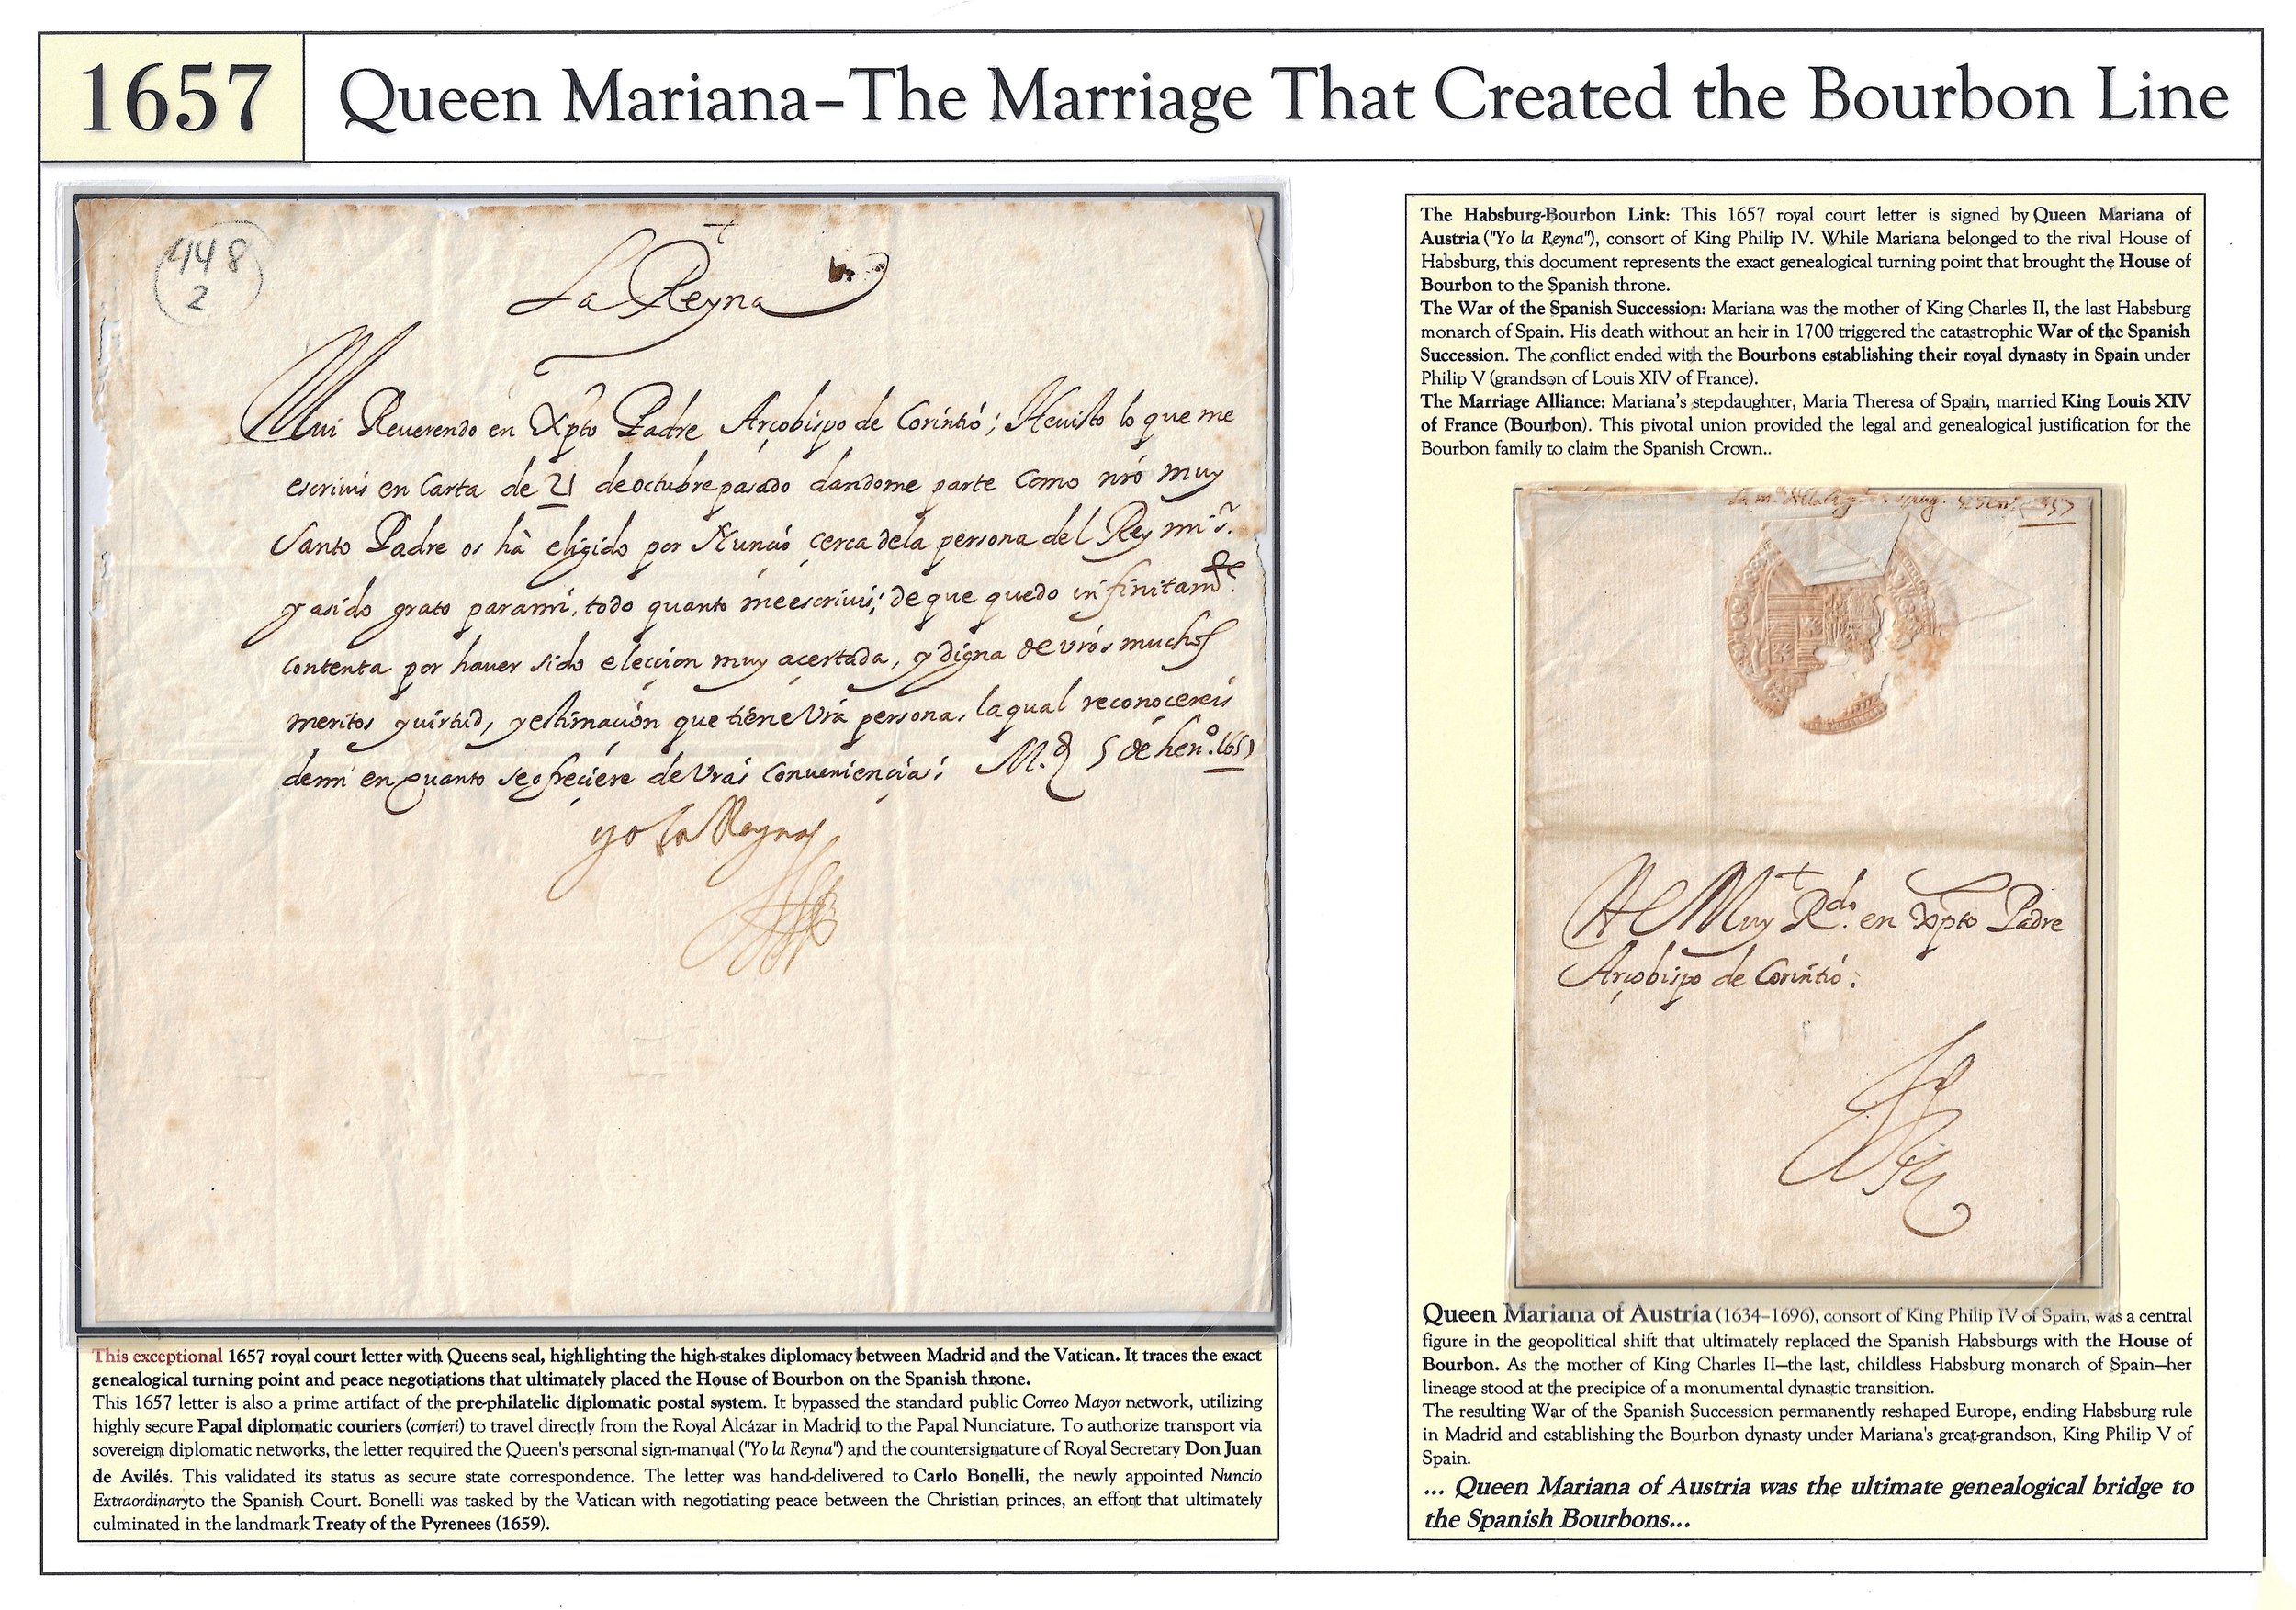 1657
Queen Mariana–The Marriage That Created the Bourbon Line
448
2
La Reyna
Mui Reuerendo en Xpto Padre Arçobispo de Corintió; Heuisto lo que me
escriuis en Carta de 21 de octubre pasado dandome parte como nró muy
Santo Padre os hà eligido por Nunció çerca dela persona del Rey mi sr.
y asido grato parami, todo quanto meescriuis; de que quedo infinitamte.
contenta por hauer sido elecçion muy açertada, y digna de vros muchos
meritos y uirtud, y estimaçión que tiene Vrà persona, la qual reconoçereis
demi en quanto se ofreçiere de Vras Conueniencias; M.d 5 de hen.o 1657
yo la Reyna
This exceptional 1657 royal court letter with Queens seal, highlighting the high-stakes diplomacy between Madrid and the Vatican. It traces the exact
genealogical turning point and peace negotiations that ultimately placed the House of Bourbon on the Spanish throne.
This 1657 letter is also a prime artifact of the pre-philatelic diplomatic postal system. It bypassed the standard public Correo Mayor network, utilizing
highly secure Papal diplomatic couriers (corrieri) to travel directly from the Royal Alcázar in Madrid to the Papal Nunciature. To authorize transport via
sovereign diplomatic networks, the letter required the Queen's personal sign-manual ("Yo la Reyna") and the countersignature of Royal Secretary Don Juan
de Avilés. This validated its status as secure state correspondence. The letter was hand-delivered to Carlo Bonelli, the newly appointed Nuncio
Extraordinaryto the Spanish Court. Bonelli was tasked by the Vatican with negotiating peace between the Christian princes, an effort that ultimately
culminated in the landmark Treaty of the Pyrenees (1659).
The Habsburg-Bourbon Link: This 1657 royal court letter is signed by Queen Mariana of
Austria ("Yo la Reyna"), consort of King Philip IV. While Mariana belonged to the rival House of
Habsburg, this document represents the exact genealogical turning point that brought the House of
Bourbon to the Spanish throne.
The War of the Spanish Succession: Mariana was the mother of King Charles II, the last Habsburg
monarch of Spain. His death without an heir in 1700 triggered the catastrophic War of the Spanish
Succession. The conflict ended with the Bourbons establishing their royal dynasty in Spain under
Philip V (grandson of Louis XIV of France).
The Marriage Alliance: Mariana's stepdaughter, Maria Theresa of Spain, married King Louis XIV
of France (Bourbon). This pivotal union provided the legal and genealogical justification for the
Bourbon family to claim the Spanish Crown..
Al Muy R.do en Xpto Padre
Arçobispo de Corintió.
Queen Mariana of Austria (1634–1696), consort of King Philip IV of Spain, was a central
figure in the geopolitical shift that ultimately replaced the Spanish Habsburgs with the House of
Bourbon. As the mother of King Charles II—the last, childless Habsburg monarch of Spain—her
lineage stood at the precipice of a monumental dynastic transition.
The resulting War of the Spanish Succession permanently reshaped Europe, ending Habsburg rule
in Madrid and establishing the Bourbon dynasty under Mariana's great-grandson, King Philip V of
Spain.
... Queen Mariana of Austria was the ultimate genealogical bridge to
the Spanish Bourbons...